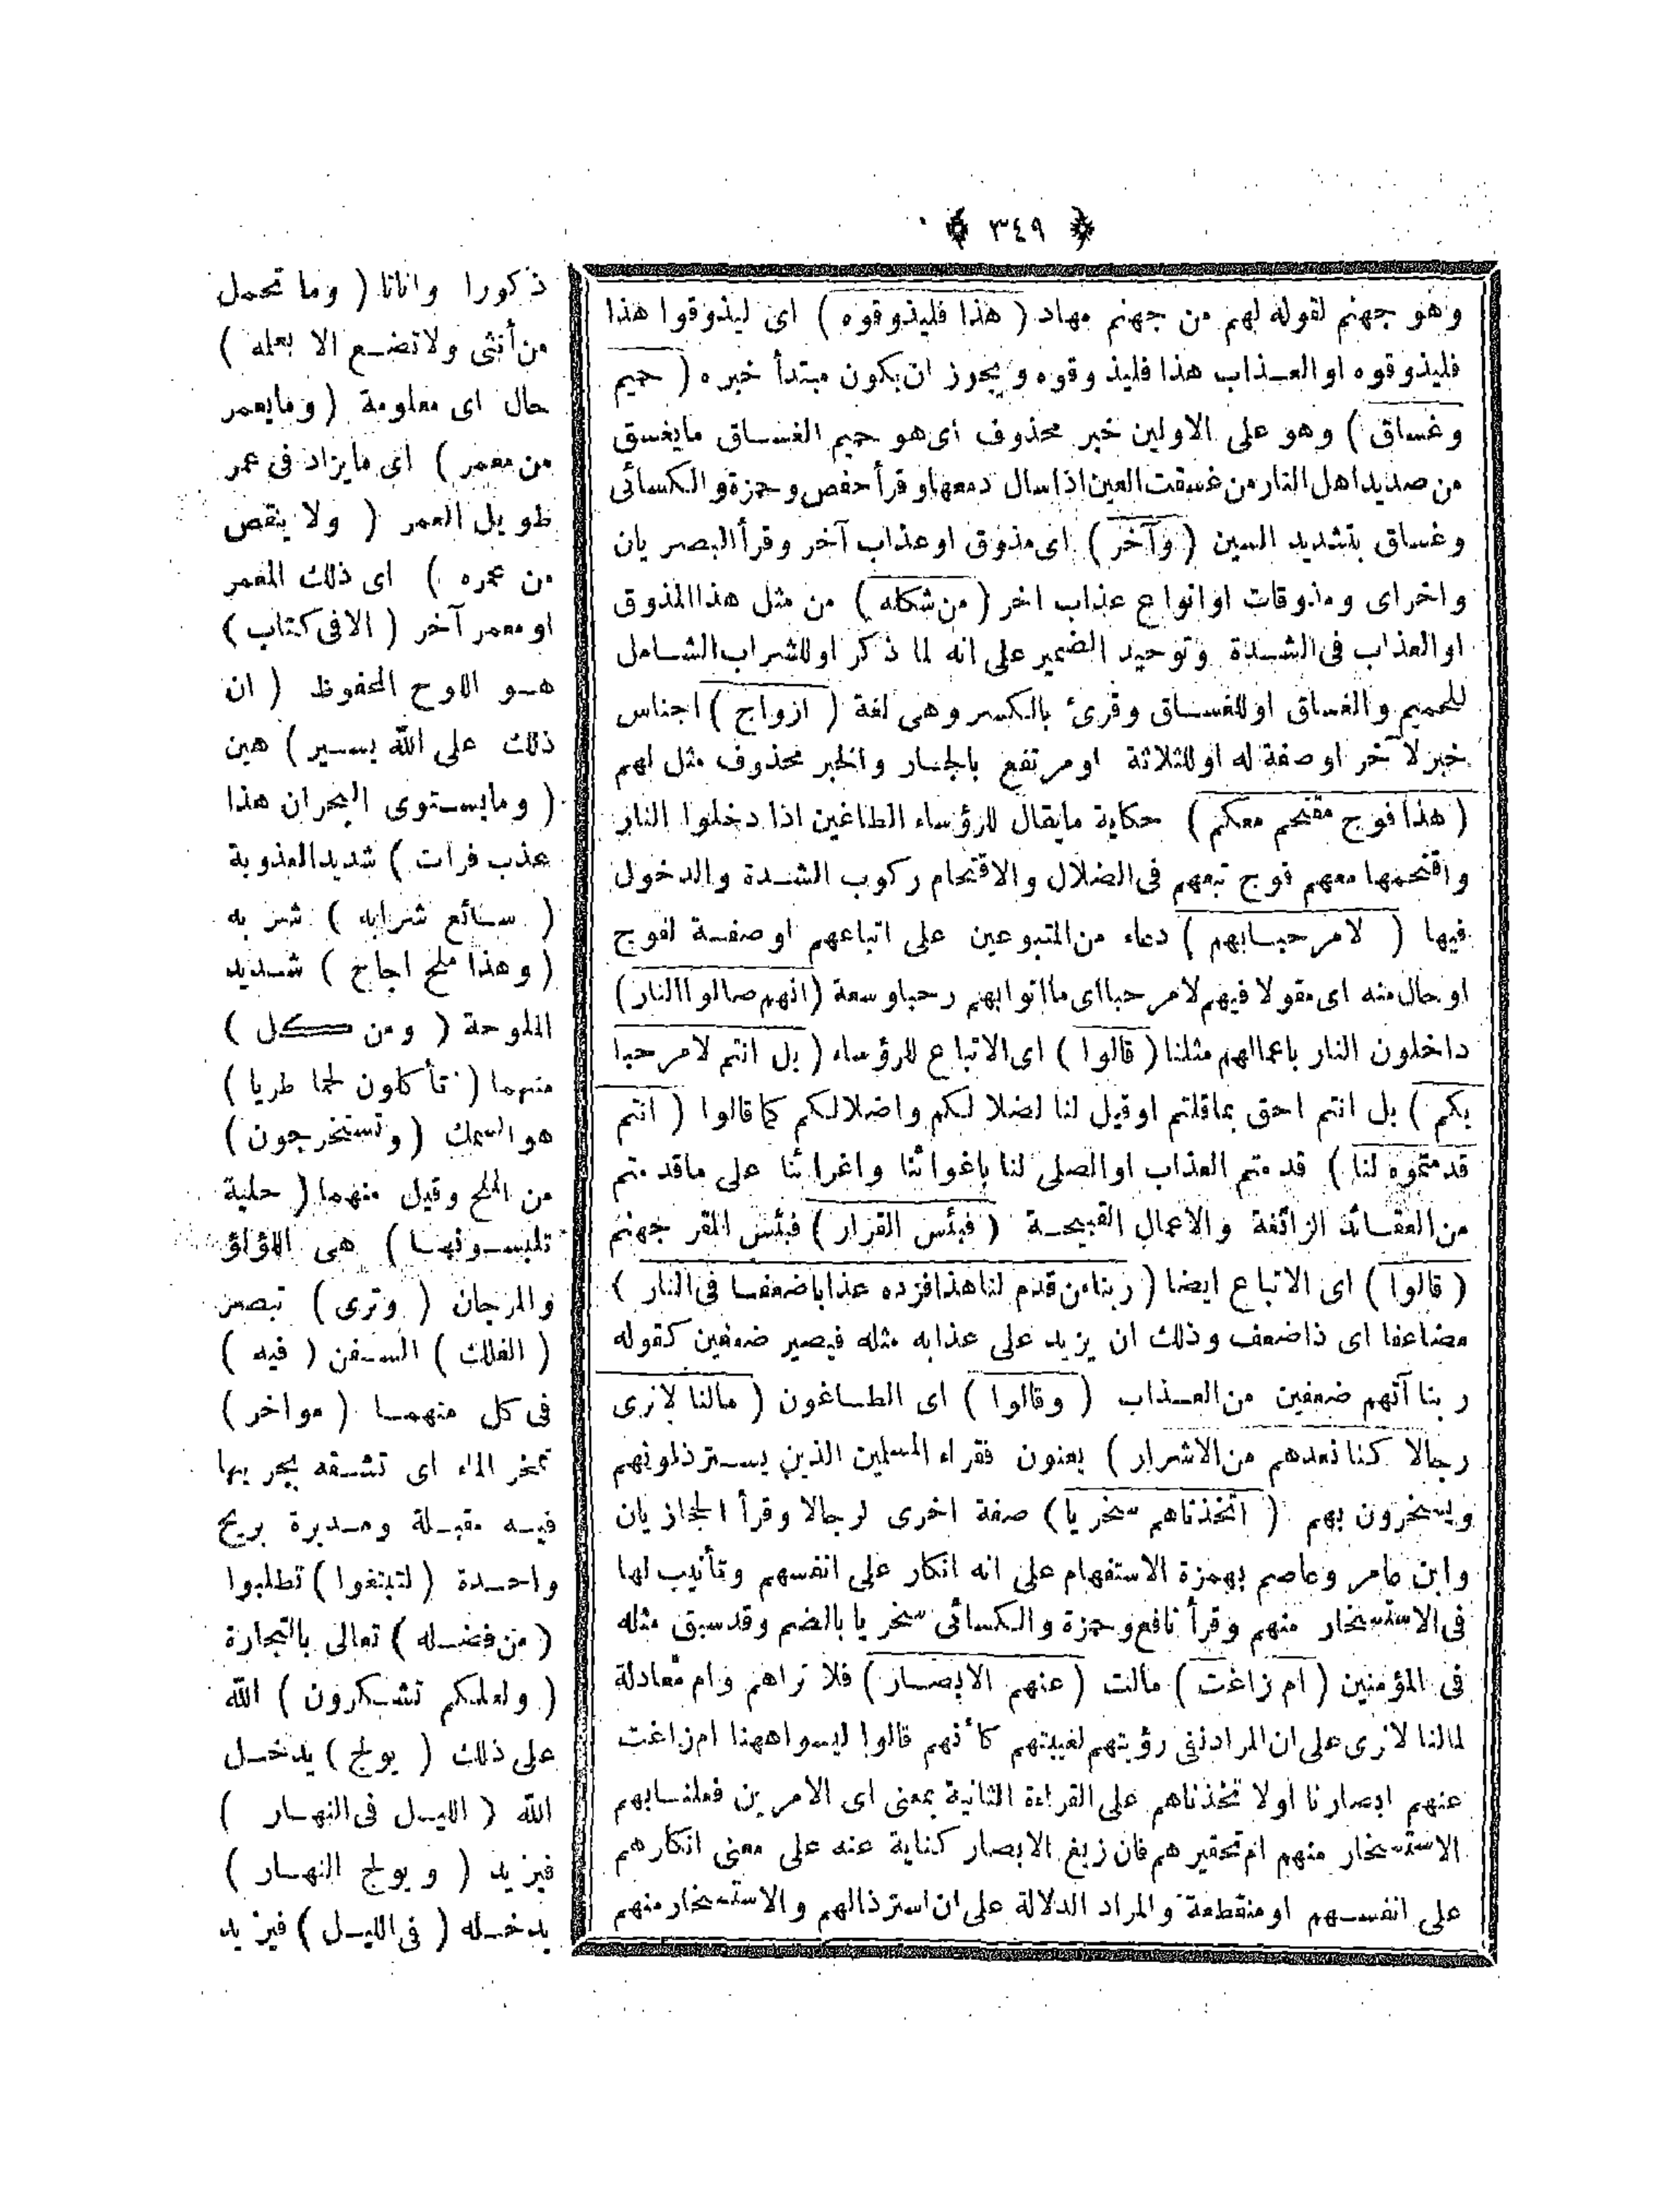 ﴿ ٣٤٩ ﴾
وهو جهنم لقوله لهم من جهنم مهاد ( هذا فليذوقوه ) اى ليذوقوا هذا
فليذوقوه او العـذاب هذا فليذوقوه ويجوز ان يكون مبتدأ خبره ( حميم
وغساق ) وهو على الاولين خبر محذوف اى هو حميم الغسـاق مايغسق
من صديد اهل النار من غسقت العين اذا سال دمعها وقرأ حفص وحمزة والكسائى
وغساق بتشديد السين ( وآخر ) اى مذوق او عذاب آخر وقرأ البصريان
واخر اى ومذوقات او انواع عذاب اخر ( من شكله ) من مثل هذا المذوق
او العذاب فى الشـدة وتوحيد الضمير على انه لما ذكر او للشراب الشـامل
للحميم والغساق او للغسـاق وقرئ بالكسر وهى لغة ( ازواج ) اجناس
خبر لآخر او صفة له او للثلاثة او مرتفع بالجـار والخبر محذوف مثل لهم
( هذا فوج مقتحم معكم ) حكاية مايقال للرؤساء الطاغين اذا دخلوا النار
واقتحمها معهم فوج تبعهم فى الضلال والاقتحام ركوب الشـدة والدخول
فيها ( لامرحبـابهم ) دعاء من المتبوعين على اتباعهم او صفـة لفوج
او حال منه اى مقولا فيهم لامرحبا اى ما اتوا بهم رحبا وسعة ( انهم صالوا النار )
داخلون النار باعمالهم مثلنا ( قالوا ) اى الاتباع للرؤساء ( بل انتم لامرحبا
بكم ) بل انتم احق بماقلتم او قيل لنا لضلالكم واضلالكم كما قالوا ( انتم
قدمتموه لنا ) قدمتم العذاب او الصلى لنا باغوائنا واغرائنا على ماقدمتم
من العقـائد الزائغة والاعمال القبيحـة ( فبئس القرار ) فبئس المقر جهنم
( قالوا ) اى الاتباع ايضا ( ربنا من قدم لنا هذا فزده عذابا ضعفـا فى النار )
مضاعفا اى ذا ضعف وذلك ان يزيد على عذابه مثله فيصير ضعفين كقوله
ربنا آتهم ضعفين من العـذاب ( وقالوا ) اى الطـاغون ( مالنا لانرى
رجالا كنا نعدهم من الاشرار ) يعنون فقراء المسلمين الذين يسـترذلونهم
ويسخرون بهم ( اتخذناهم سخريا ) صفة اخرى لرجالا وقرأ الحجازيان
وابن عامر وعاصم بهمزة الاستفهام على انه انكار على انفسهم وتأنيب لها
فى الاستسخار منهم وقرأ نافع وحمزة والكسائى سخريا بالضم وقدسبق مثله
فى المؤمنين ( ام زاغت ) مالت ( عنهم الابصـار ) فلا نراهم وام معادلة
لمالنا لانرى على ان المراد نفى رؤيتهم لغيبتهم كأنهم قالوا ليسوا ههنا ام زاغت
عنهم ابصارنا او لاتخذناهم على القراءة الثانية بمعنى اى الامرين فعلنـا بهم
الاستسخار منهم ام تحقيرهم فان زيغ الابصار كناية عنه على معنى انكارهم
على انفسـهم او منقطعة والمراد الدلالة على ان استرذالهم والاستسخار منهم
ذكورا واناثا ( وما تحمل
من أنثى ولاتضـع الا بعلمه )
حال اى معلومة ( ومايعمر
من معمر ) اى مايزاد فى عمر
طويل العمر ( ولا ينقص
من عمره ) اى ذلك المعمر
او معمر آخر ( الا فى كتاب )
هـو اللوح المحفوظ ( ان
ذلك على الله يسـير ) هين
( ومايسـتوى البحران هذا
عذب فرات ) شديد العذوبة
( سـائغ شرابه ) شربه
( وهذا ملح اجاج ) شـديد
الملوحة ( ومن كل )
منهما ( تأكلون لحما طريا )
هو السمك ( وتستخرجون )
من الملح وقيل منهما ( حلية
تلبسـونهـا ) هى اللؤلؤ
والمرجان ( وترى ) تبصر
( الفلك ) السـفن ( فيه )
فى كل منهمـا ( مواخر )
تمخر الماء اى تشـقه بجريها
فيـه مقبـلة ومـدبرة بريح
واحـدة ( لتبتغوا ) تطلبوا
( من فضـله ) تعالى بالتجارة
( ولعلكم تشـكرون ) الله
على ذلك ( يولج ) يدخـل
الله ( الليـل فى النهـار )
فيزيد ( ويولج النهـار )
يدخـله ( فى الليـل ) فيزيد